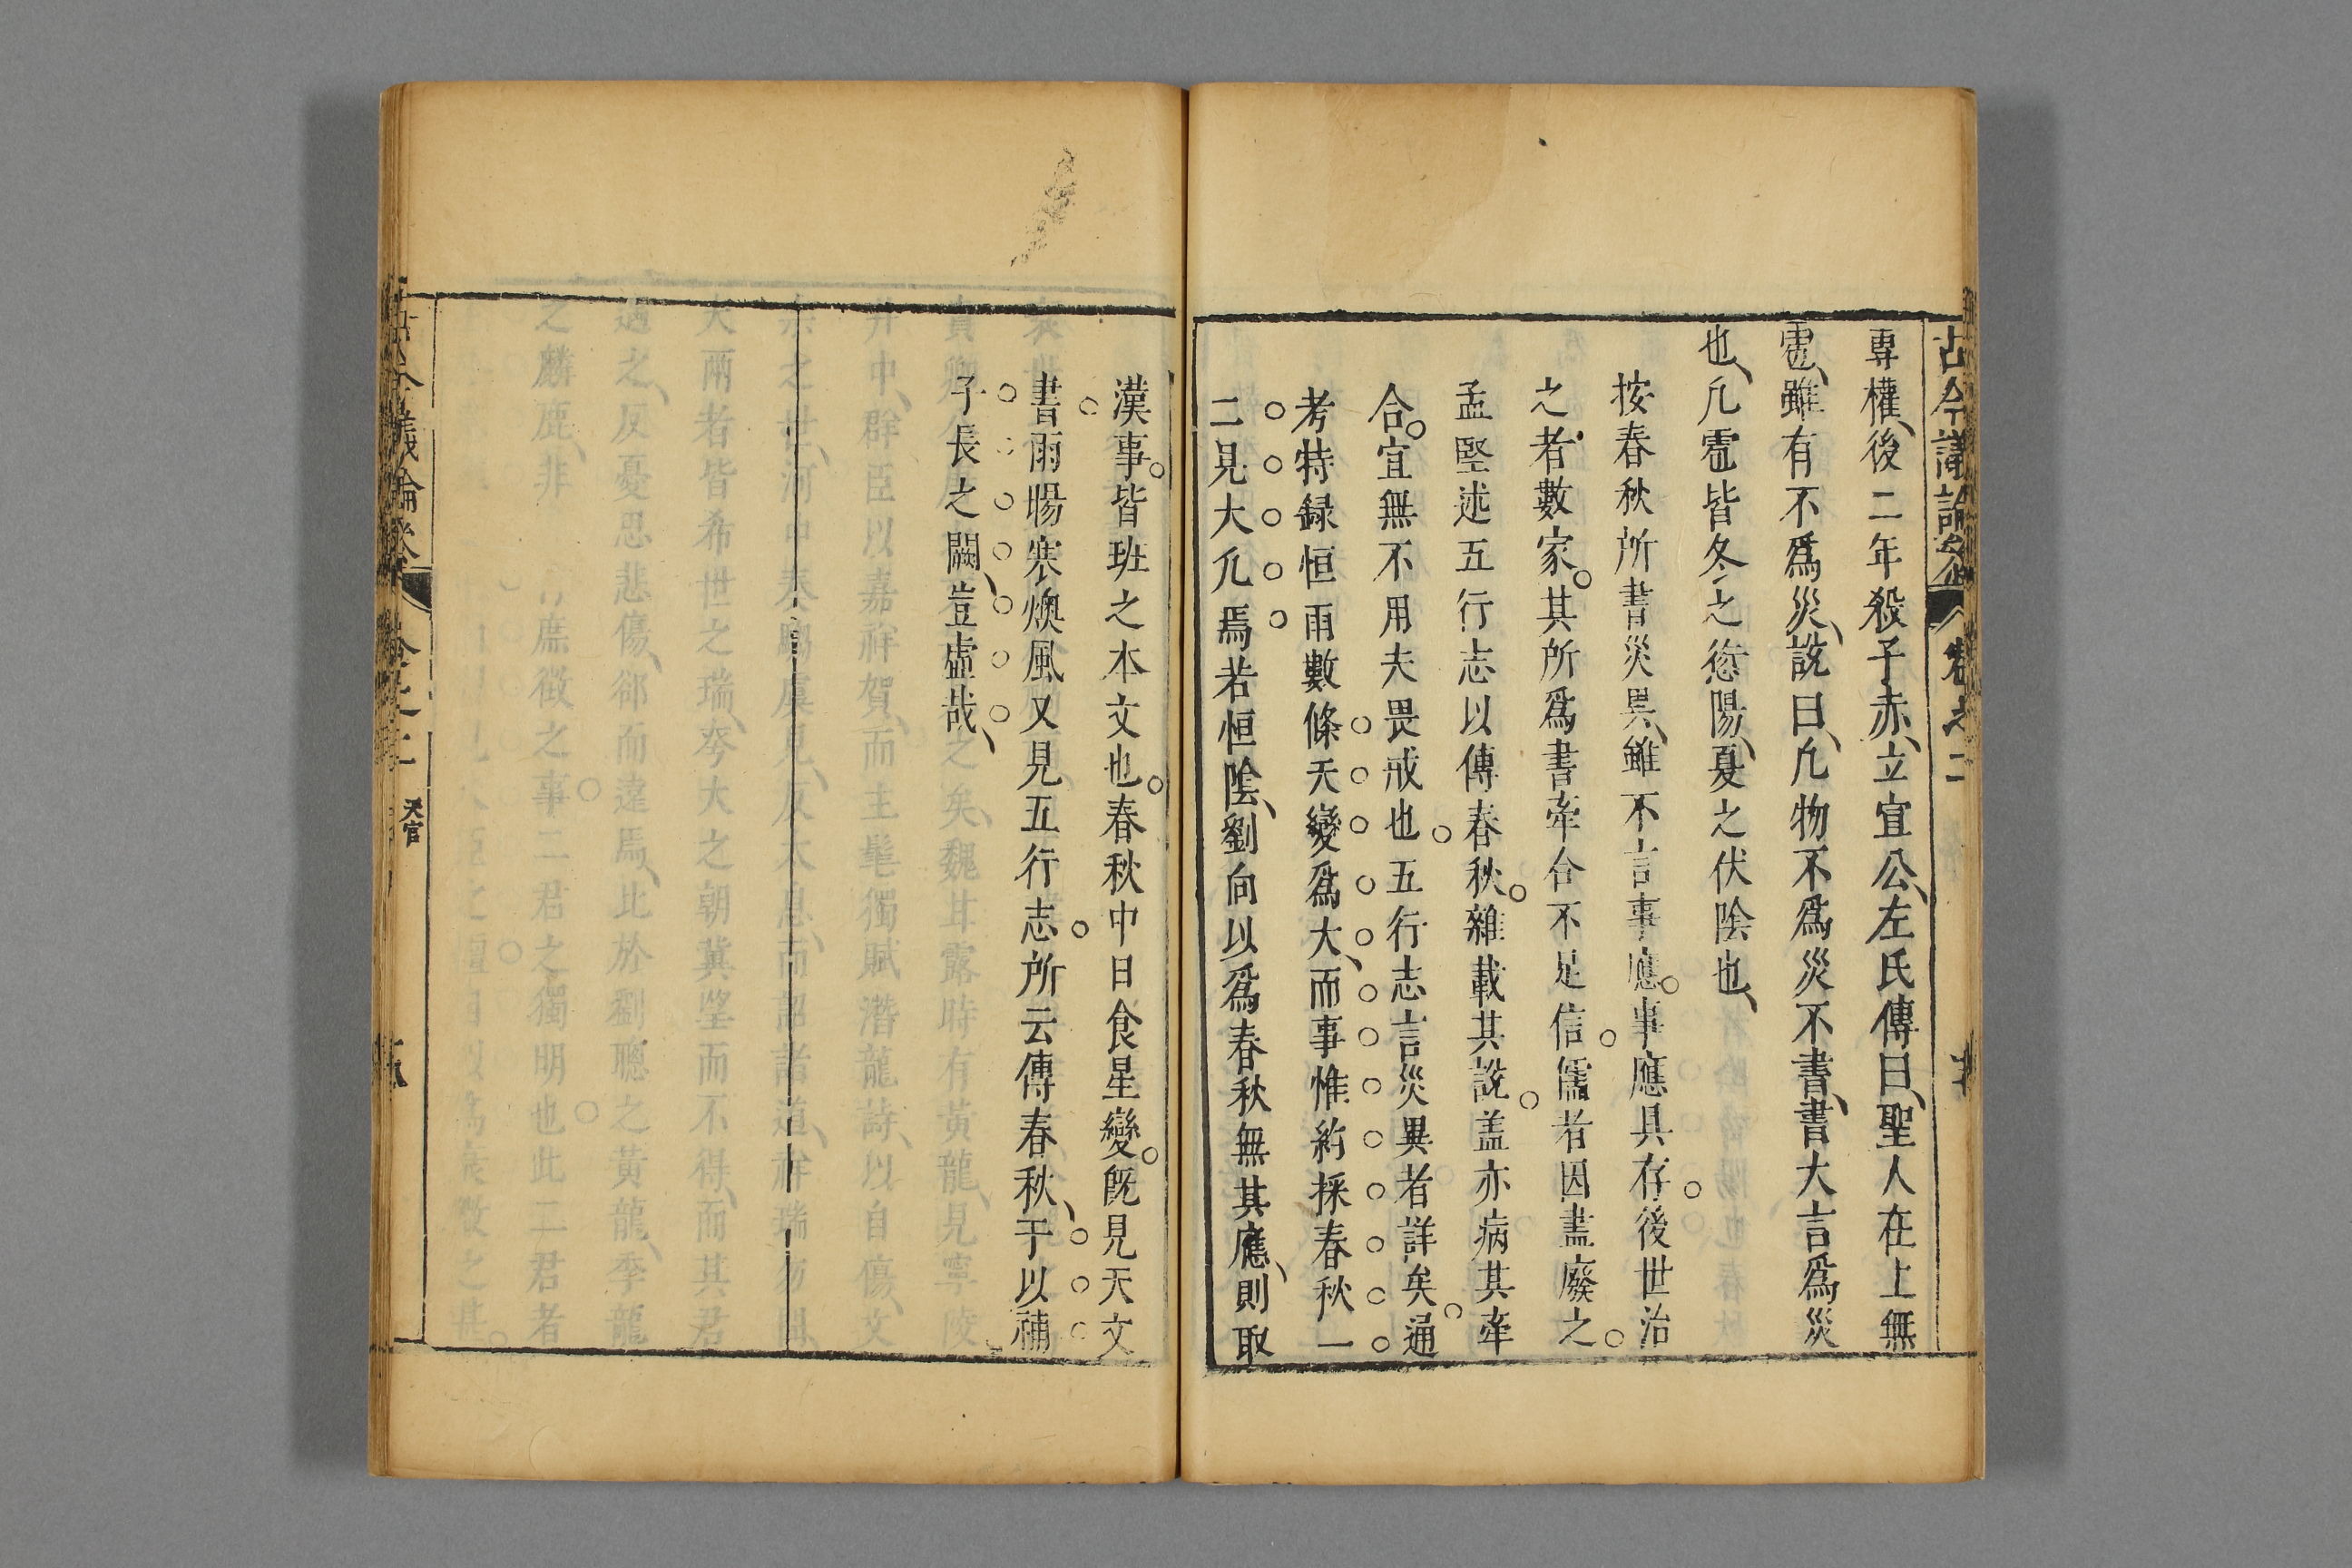 古今議論參 卷之二
專權、後二年殺子赤、立宣公、左氏傳曰、聖人在上無
雹、雖有不爲災、說曰、凢物不爲災不書、書大言爲災
也、凢雹皆冬之愆陽、夏之伏隂也、
按春秋所書災異、雖不言事應。事應具存。後世治
之者數家。其所爲書牽合不足信。儒者因盡廢之。
孟堅述五行志以傳春秋。雜載其說。盖亦病其牽
合。宜無不用夫畏戒也。五行志言災異者詳矣。通
考特録恒雨數條天變爲大、而事惟約採春秋一
二見大凢焉若恒隂、劉向以爲春秋無其應、則取
漢事。皆班之本文也。春秋中日食星變。既見天文
書。雨暘寒燠風又見五行志。所云傳春秋、于以補
子長之闕、豈虛哉、
古今議論參 卷之二 天官